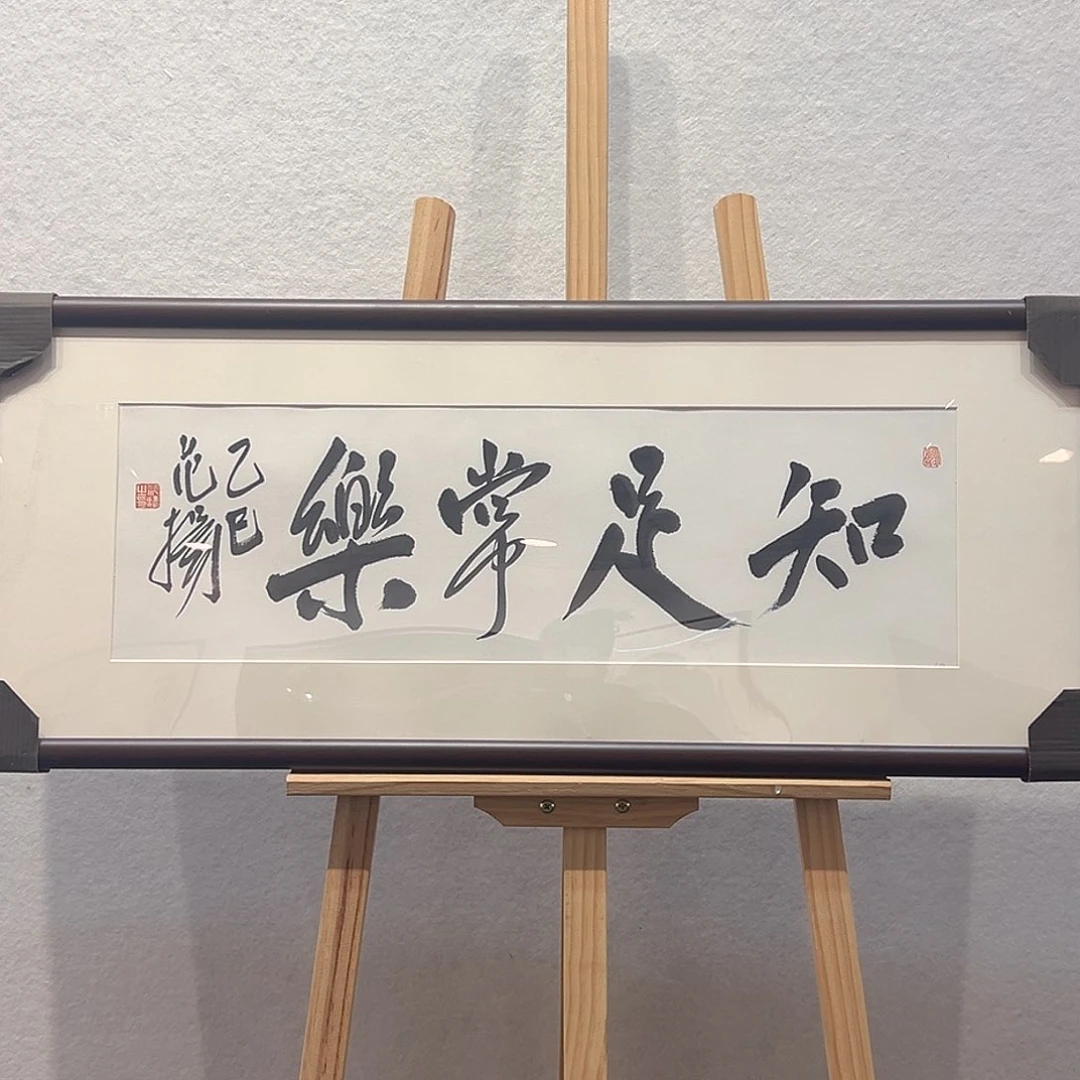 知足常樂
乙巳
范揚